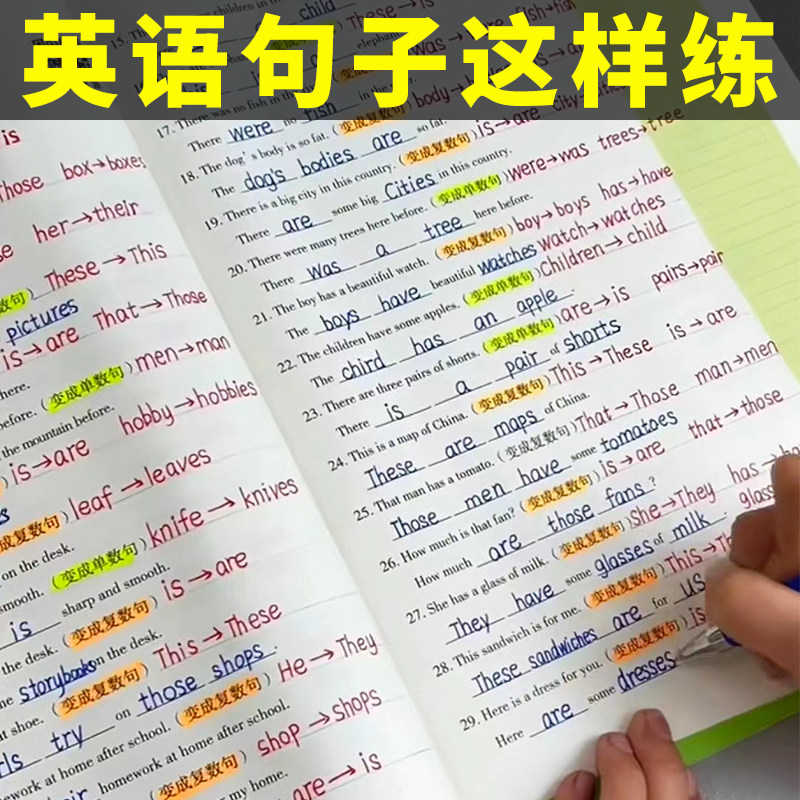 英语句子这样练
child
These→is
fish→fish
17. There was no fish in the
There were no fish in the
(变成复数句) body→
18. The dog's body is so fat. (变成复数句) is→are city→cities
The dog's bodies are so fat.
19. There is a big city in this country. (变成单数句) were→was trees→tree
There are some big Cities in this country.
20. There were many trees here before. (变成复数句) boy→boys has→have
There was a tree here before.
watch→watches
21. The boy has a beautiful watch. (变成单数句) Children→child
The boys have beautiful watches
22. The children have some apples. (变成单数句) are→is pairs→pair
The chird has an apple.
23. There are three pairs of shorts. (变成复数句) This→These is→are
There is a pair of shorts
24. This is a map of China. (变成复数句) That→Those man→men
These are maps of China.
25. That man has a tomato. (变成复数句) is→are that→those
Those men have some tomatoes
26. How much is that fan? (变成复数句) She→They has→
How much are those fans?
27. She has a glass of milk. (变成复数句) This→
They have some glasses of milk.
28. This sandwich is for me. (变成复数句) is
These sandwiches are for us
29. Here is a dress for you.
Here are some dresses
is
box→boxes
her→their
These→This
pictures
is→are That→Those
here.
before. (变成单数句) men→man
the mountain before.
is→are hobby→hobbies
(变成复数句) leaf→leaves
on the desk.
smooth. (变成单数句) knife→knives
is sharp and smooth.
the desk. (变成复数句) is→are
storybooks on the desk.
at shoe. (变成复数句) This→These
try on those shops.
school. (变成复数句) He→They
homework at home after school.
(变成复数句) shop→shops
my home.
are→is